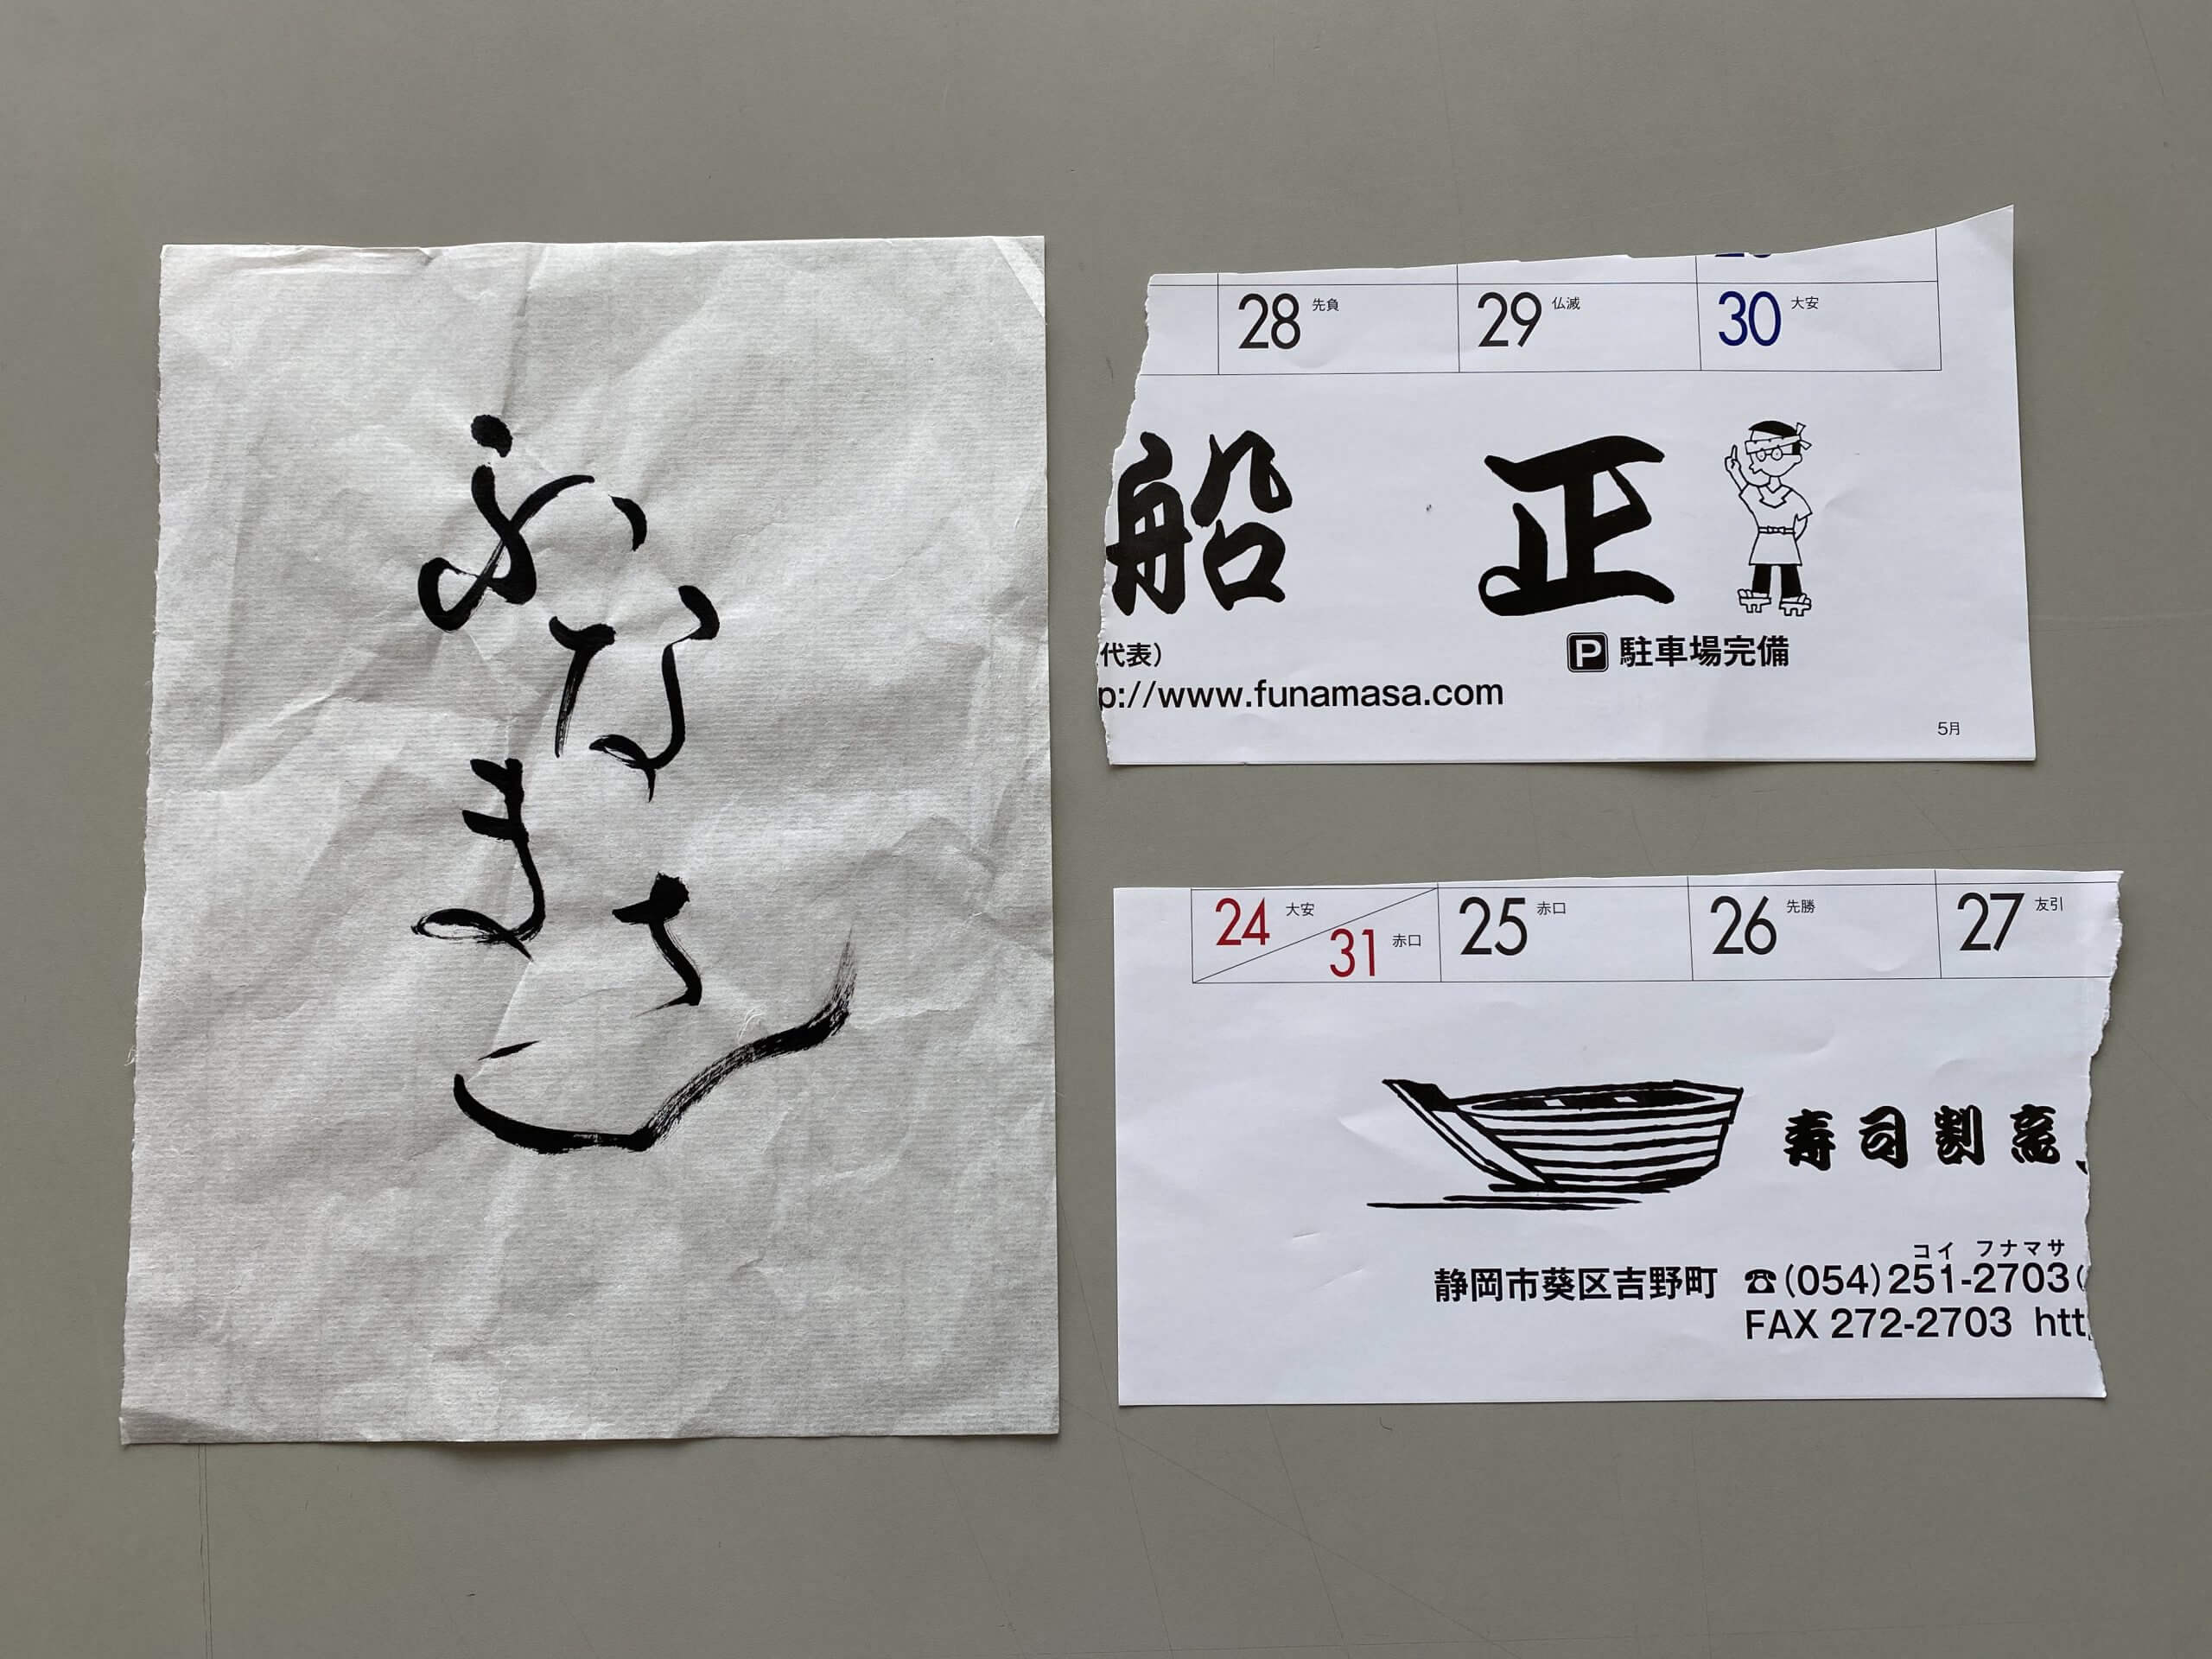 ふなまさ
28 先負 29 仏滅 30 大安
船 正
代表）
P 駐車場完備
p://www.funamasa.com
5月
24 大安 31 赤口 25 赤口 26 先勝 27 友引
寿司割烹
コイ フナマサ
静岡市葵区吉野町 ☎(054)251-2703(
FAX 272-2703 htt